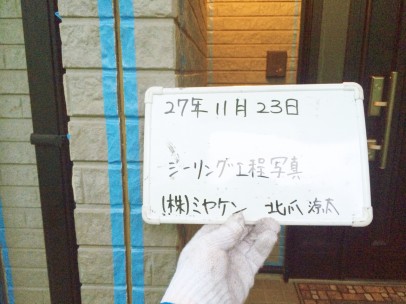 27年 11月 23日
シーリング工程写真
(株)ミヤケン 北爪 涼太